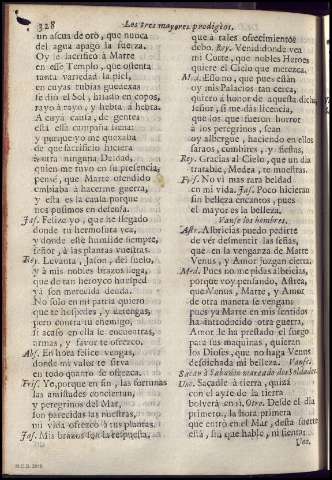 328 Los tres mayores prodigios.
un ascua de oro, que nunca
del agua apagò la fuerza.
Oy le sacrificò à Marte
en esse Templo, que ostenta
tanta variedad la piel,
en cuyas rubias guedexas
le diò el Sol, hilado en copos,
rayo à rayo, y hebra à hebra.
A cuya causa, de gentes
està essa campaña llena:
y porque yo me quexaba
de que sacrificio hiciera
contra ninguna Deidad,
quien me tuvo en su presencia,
pensè, que Marte ofendido
embiaba à hacerme guerra,
y esta es la causa porque
nos pusimos en defensa.
Jas. Felice yo, que he llegado
donde tu hermosura vea,
y donde estè humilde siempre,
señor, à las plantas vuestras.
Rey. Levanta, Jason, del suelo,
y à mis nobles brazos llega,
que de tan heroyco huesped
yà son merecida deuda.
No solo en mi patria quiero
que te hospedes, y detengas,
pero contra tu enemigo,
si acaso en ella le encuentras,
armas, y favor te ofrezco.
Abs. En hora felice vengas,
donde mi valor te sirva
en todo quanto se ofrezca.
Fris. Yo, porque en fin, las fortunas
las amistades conciertan,
y peregrinos del Mar,
son parecidas las nuestras,
mi vida ofrezco à tus plantas.
Jas. Mis brazos son la respuesta,
que à tales ofrecimientos
debo. Rey. Venid donde vea
mi Corte, que nobles Heroes
quiere el Cielo que merezca.
Med. Esso no, que pues estàn
oy mis Palacios tan cerca,
quiero à honor de aquesta dicha,
señor, si me dàs licencia,
que los que fueron horror
à los peregrinos, sean
oy albergue, haciendo en ellos
saraos, combites, y fiestas.
Rey. Gracias al Cielo, que un dia
tratable, Medea, te muestras.
Fris. No vi mas rara beldad
en mi vida. Jas. Poco hicieran
sin belleza encantos, pues
el mayor es la belleza.
Vanse los hombres.
Astr. Albricias puedo pedirte
de vèr desmentir las señas,
que en la venganza de Marte
Venus, y Amor juzgan cierta.
Med. Pues no me pidas albricias,
porque voy pensando, Astrea,
que Venus, Marte, y Amor
de otra manera se vengan:
pues yà Marte en mis sentidos
ha introducido otra guerra,
Amor le ha prestado el fuego
para sus maquinas, quieran
los Dioses, que no haga Venus
desdichada mi belleza. Vanse.
Sacan à Sabañon mareado dos Soldados.
Uno. Sacadle à tierra, quizà
con el ayre de la tierra
bolverà en sì. Otro. Desde el dia
primero, la hora primera
que entrò en el Mar, desta suerte
està, sin que hable, ni sienta.